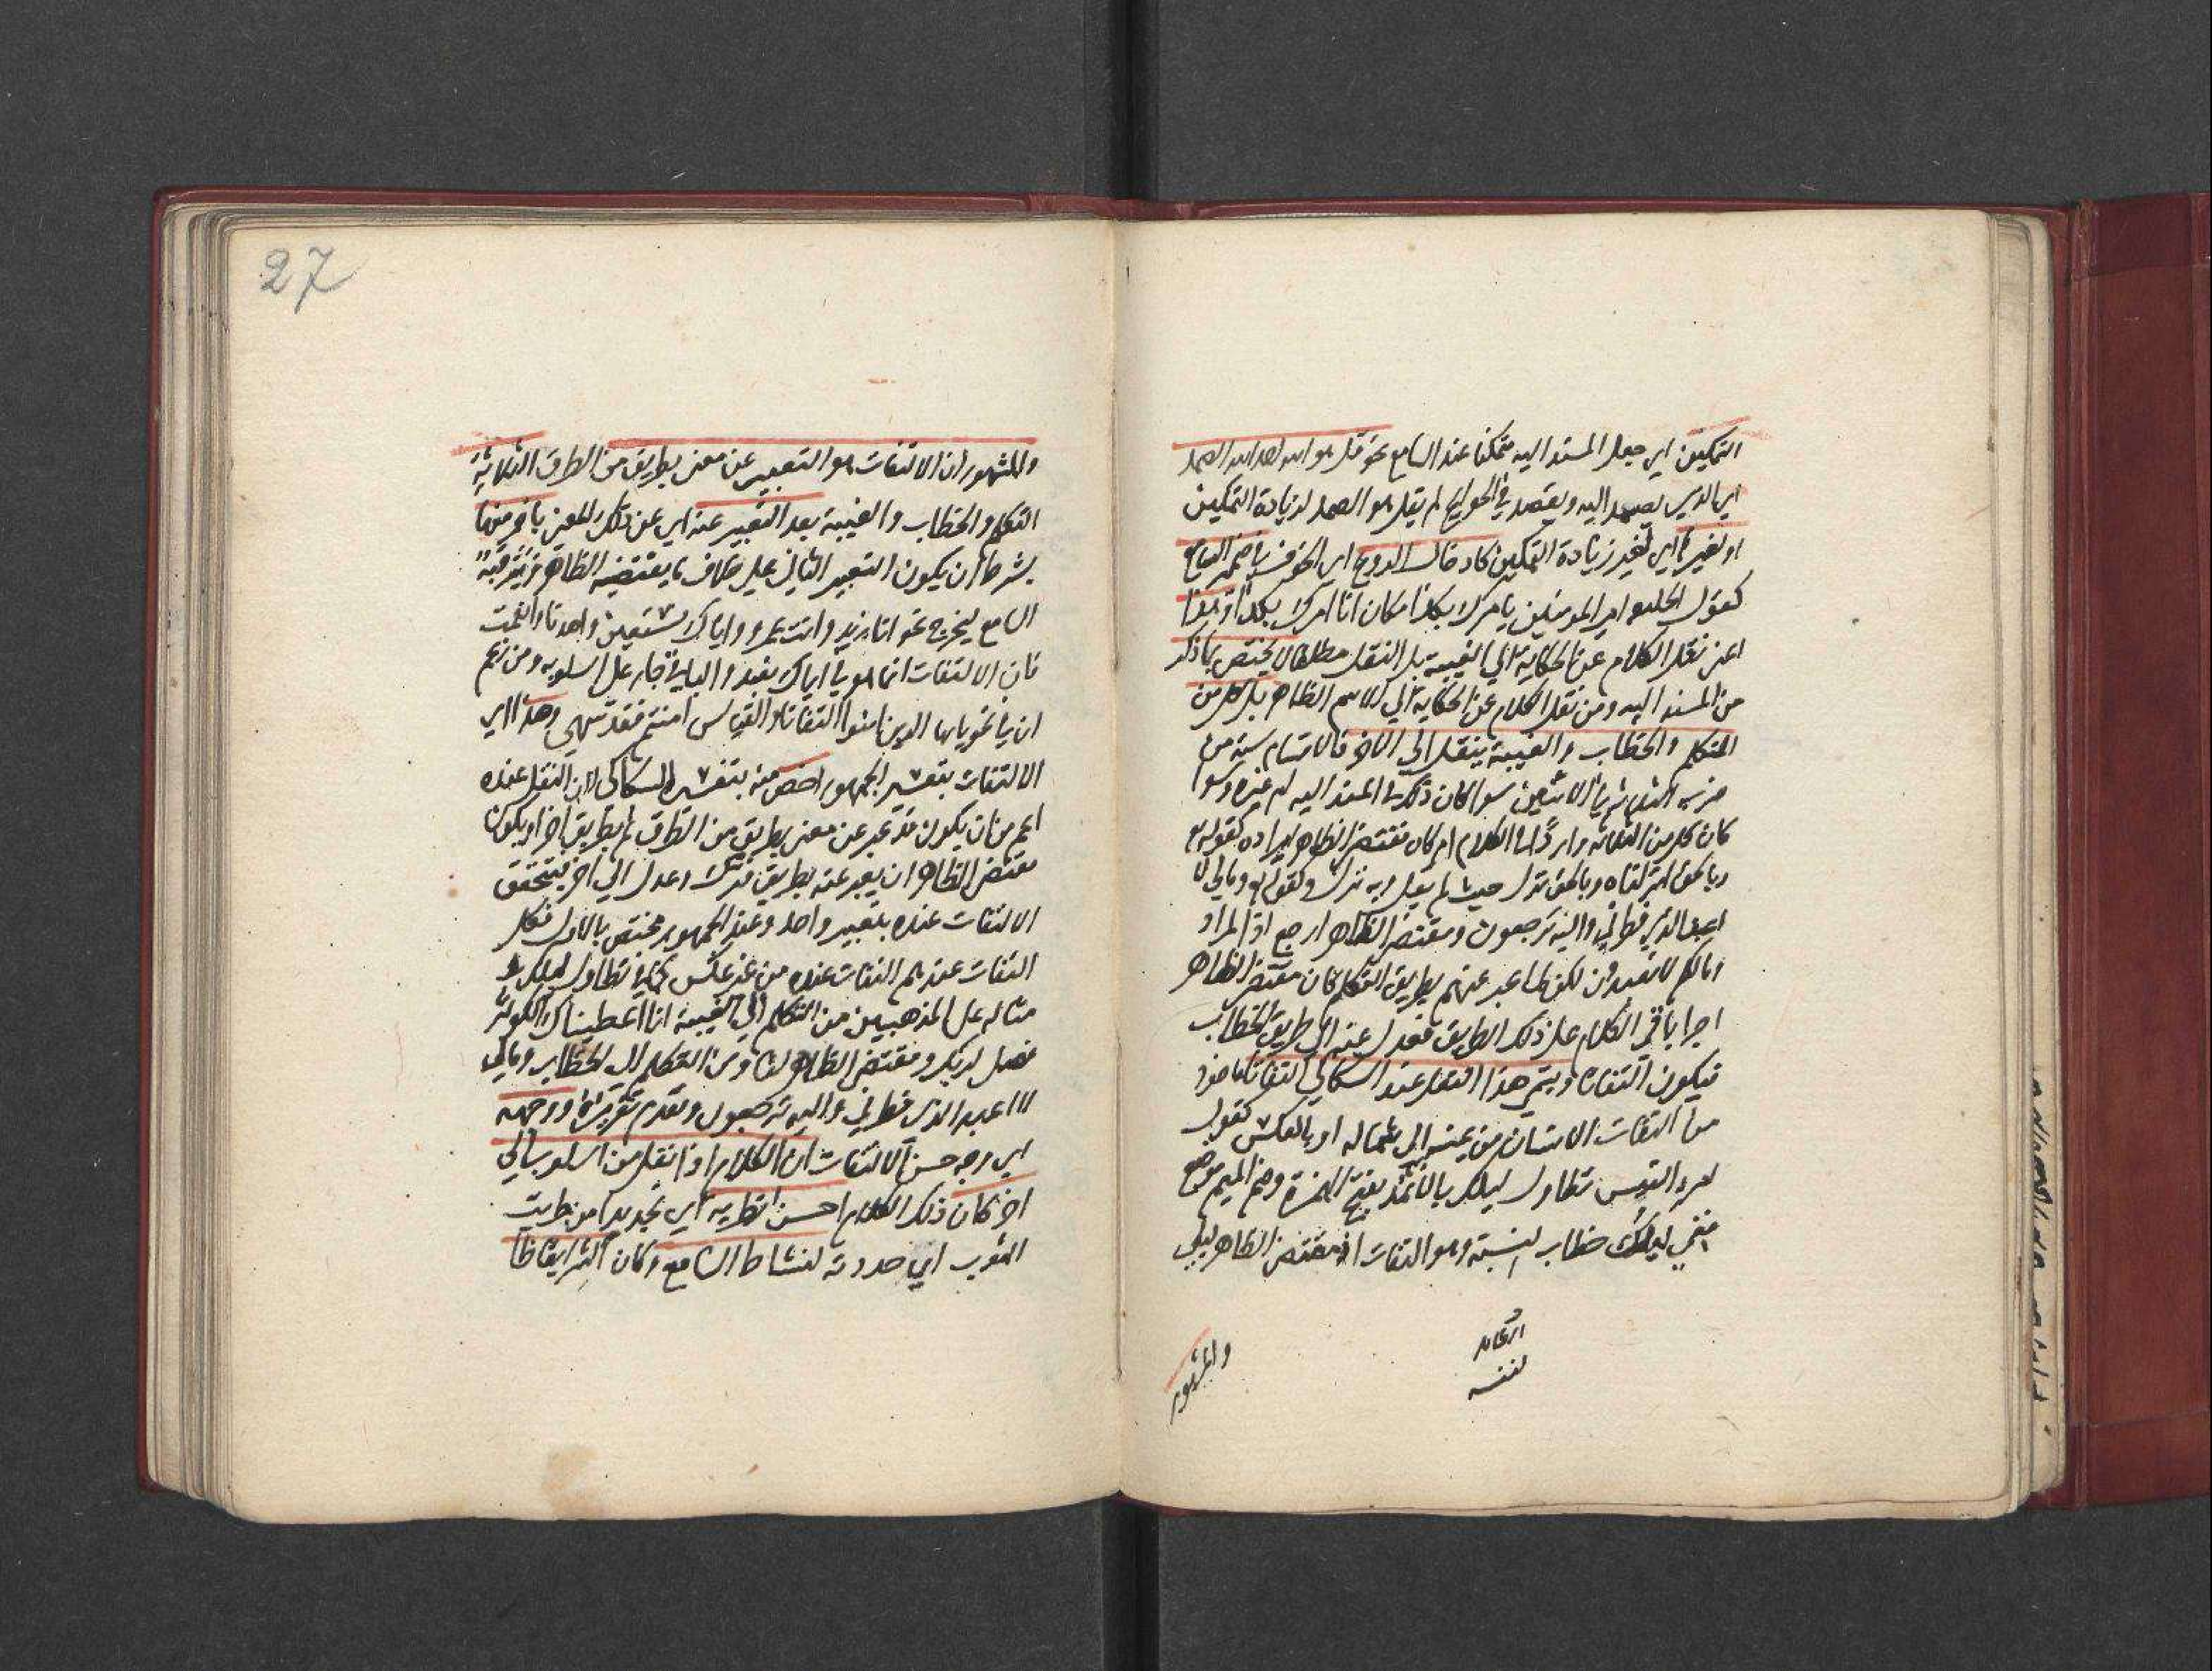 التمكين اي جعل المسند اليه متمكنا عند السامع نحو قل هو الله احد الله الصمد
اي الذي يصمد اليه ويقصد في الحوائج لم يقل هو الصمد لزيادة التمكين
او لغيره اي لغير زيادة التمكين كادخال الروع اي الخوف في ضمير السامع
كقول الخلفاء امير المومنين يامرك بكذا مكان انا امرك بكذا وهذا
اعني نقل الكلام عن الحكاية الي الغيبة بل النقل مطلقا لا يختص بما ذكر
من المسند اليه ومن نقل الكلام عن الحكاية الي الاسم الظاهر بل كل من
المتكلم والخطاب والغيبة ينقل الي الاخر فالاقسام ستة من
ضرب الثلاثة في الاثنين سوا كان ذلك في المسند اليه ام غيره وسوا
كان كل من الثلاثة واردا في الكلام ام كان مقتضي الظاهر ايراده كقوله تع
وبالحق انزلناه وبالحق نزل حيث لم يقل وبه نزل وكقوله تع ومالي لا
اعبد الذي فطرني واليه ترجعون ومقتضي الظاهر ارجع اذ المراد
ومالكم لا تعبدون لكن لما عبر عنهم بطريق التكلم كان مقتضي الظاهر
اجرا باقي الكلام علي ذلك الطريق فعدل عنه الي طريق الخطاب
فيكون التفاتا ويسمي هذا النقل عند السكاكي التفاتا ماخوذ
من التفات الانسان من يمينه الي شماله او بالعكس كقول
امرء القيس تطاول ليلك بالاثمد بفتح الهمزة وضم الميم موضع
ففي ليلك خطاب لنفسه وهو التفات اذ مقتضي الظاهر ليلي
لنفسه
والمشهور
27
والمشهور ان الالتفات هو التعبير عن معني بطريق من الطرق الثلاثة
التكلم والخطاب والغيبة بعد التعبير عنه اي عن ذلك المعني باخر منها
بشرط ان يكون التعبير الثاني علي خلاف ما يقتضيه الظاهر ويترقبه
السامع ليخرج نحو انا زيد وانت عمرو واياك نستعين واهدنا وانعمت
فان الالتفات انما هو في اياك نعبد والباقي جار علي اسلوبه ومن زعم
ان في نحو يا ايها الذين امنوا التفاتا والقياس امنتم فقد سهي وهذا اي
الالتفات بتفسير الجمهور اخص منه بتفسير السكاكي لان النقل عنده
اعم من ان يكون قد عبر عن معني بطريق من الطرق ثم بطريق اخر او يكون
مقتضي الظاهر ان يعبر عنه بطريق فترك وعدل الي اخر فيتحقق
الالتفات عنده بتعبير واحد وعند الجمهور مختص بالاول فكل
التفات عندهم التفات عنده من غير عكس كما في تطاول ليلك
مثاله علي المذهبين من التكلم الي الغيبة انا اعطيناك الكوثر
فصل لربك ومقتضي الظاهر لنا ومن التكلم الي الخطاب ومالي
لا اعبد الذي فطرني واليه ترجعون وتقدم تقريره ووجهه
اي وجه حسن الالتفات ان الكلام اذا نقل من اسلوب الي
اخر كان ذلك الكلام احسن تطرية اي تجديدا من طريت
الثوب اي جددته لنشاط السامع وكان اكثر ايقاظا